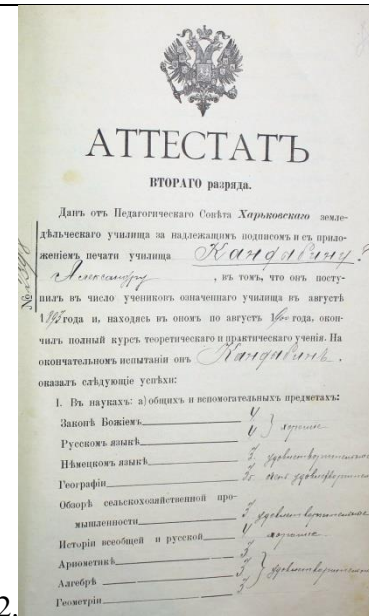 АТТЕСТАТЪ
ВТОРАГО разряда.
Данъ отъ Педагогическаго Совѣта Харьковскаго земле-
дѣльческаго училища за надлежащимъ подписомъ и съ прило-
женіемъ печати училища Кандабину
Александру, въ томъ, что онъ посту-
пилъ въ число учениковъ означеннаго училища въ августѣ
1893 года и, находясь въ ономъ по августъ года, окон-
чилъ полный курсъ теоретическаго и практическаго ученія. На
окончательномъ испытаніи онъ Кандабинъ.
оказалъ слѣдующіе успѣхи:
I. Въ наукахъ: а) общихъ и вспомогательныхъ предметахъ:
Законѣ Божіемъ 4
Русскомъ языкѣ 4 } хорошіе
Нѣмецкомъ языкѣ 3, удовлетворительное
Географіи 3
Обзорѣ сельскохозяйственной про-
мышленности 3 удовлетворительное
Исторіи всеобщей и русской 4 хорошіе
Ариѳметикѣ 3
Алгебрѣ 3 } удовлетворительное
Геометріи 3
№
2.